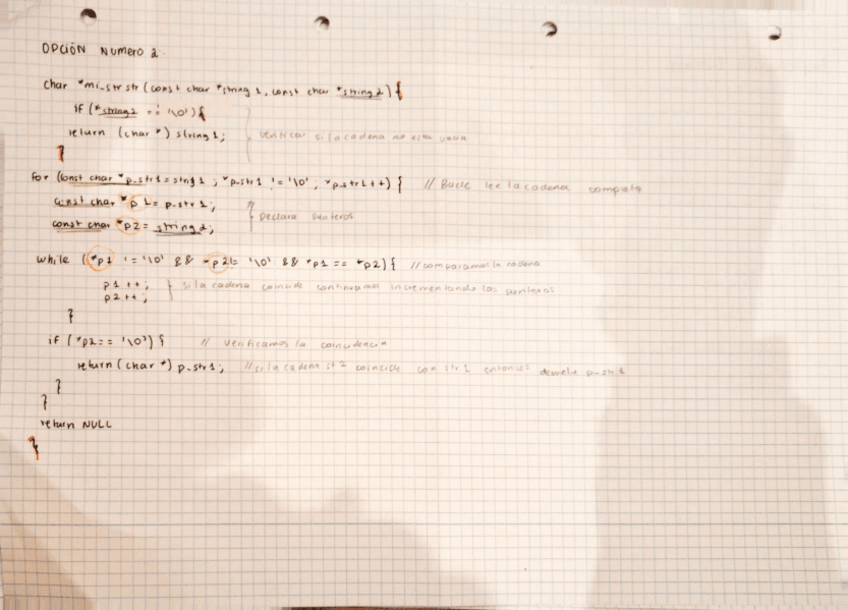 OPCIÓN NUMERO 2.
char *mi_strstr (const char *string 1, const char *string 2) {
if (*string2 == '\0') {
return (char*) string1; verificar si la cadena no esta vacia
}
for (const char *p_str1 = string 1 ; *p_str1 != '\0' ; *p_str1++) { // Bucle lee la cadena completa
const char *p1 = p_str 1; Declara punteros
const char *p2 = string 2;
while (*p1 != '\0' && *p2 != '\0' && *p1 == *p2) { // comparamos la cadena
p1 ++; si la cadena coincide continuamos incrementando los punteros
p2 ++;
}
if (*p2 == '\0') { // verificamos la coincidencia
return (char *) p_str1; // si la cadena st2 coincide con str 1 entonces devuelve p_str 1
}
}
return NULL
}